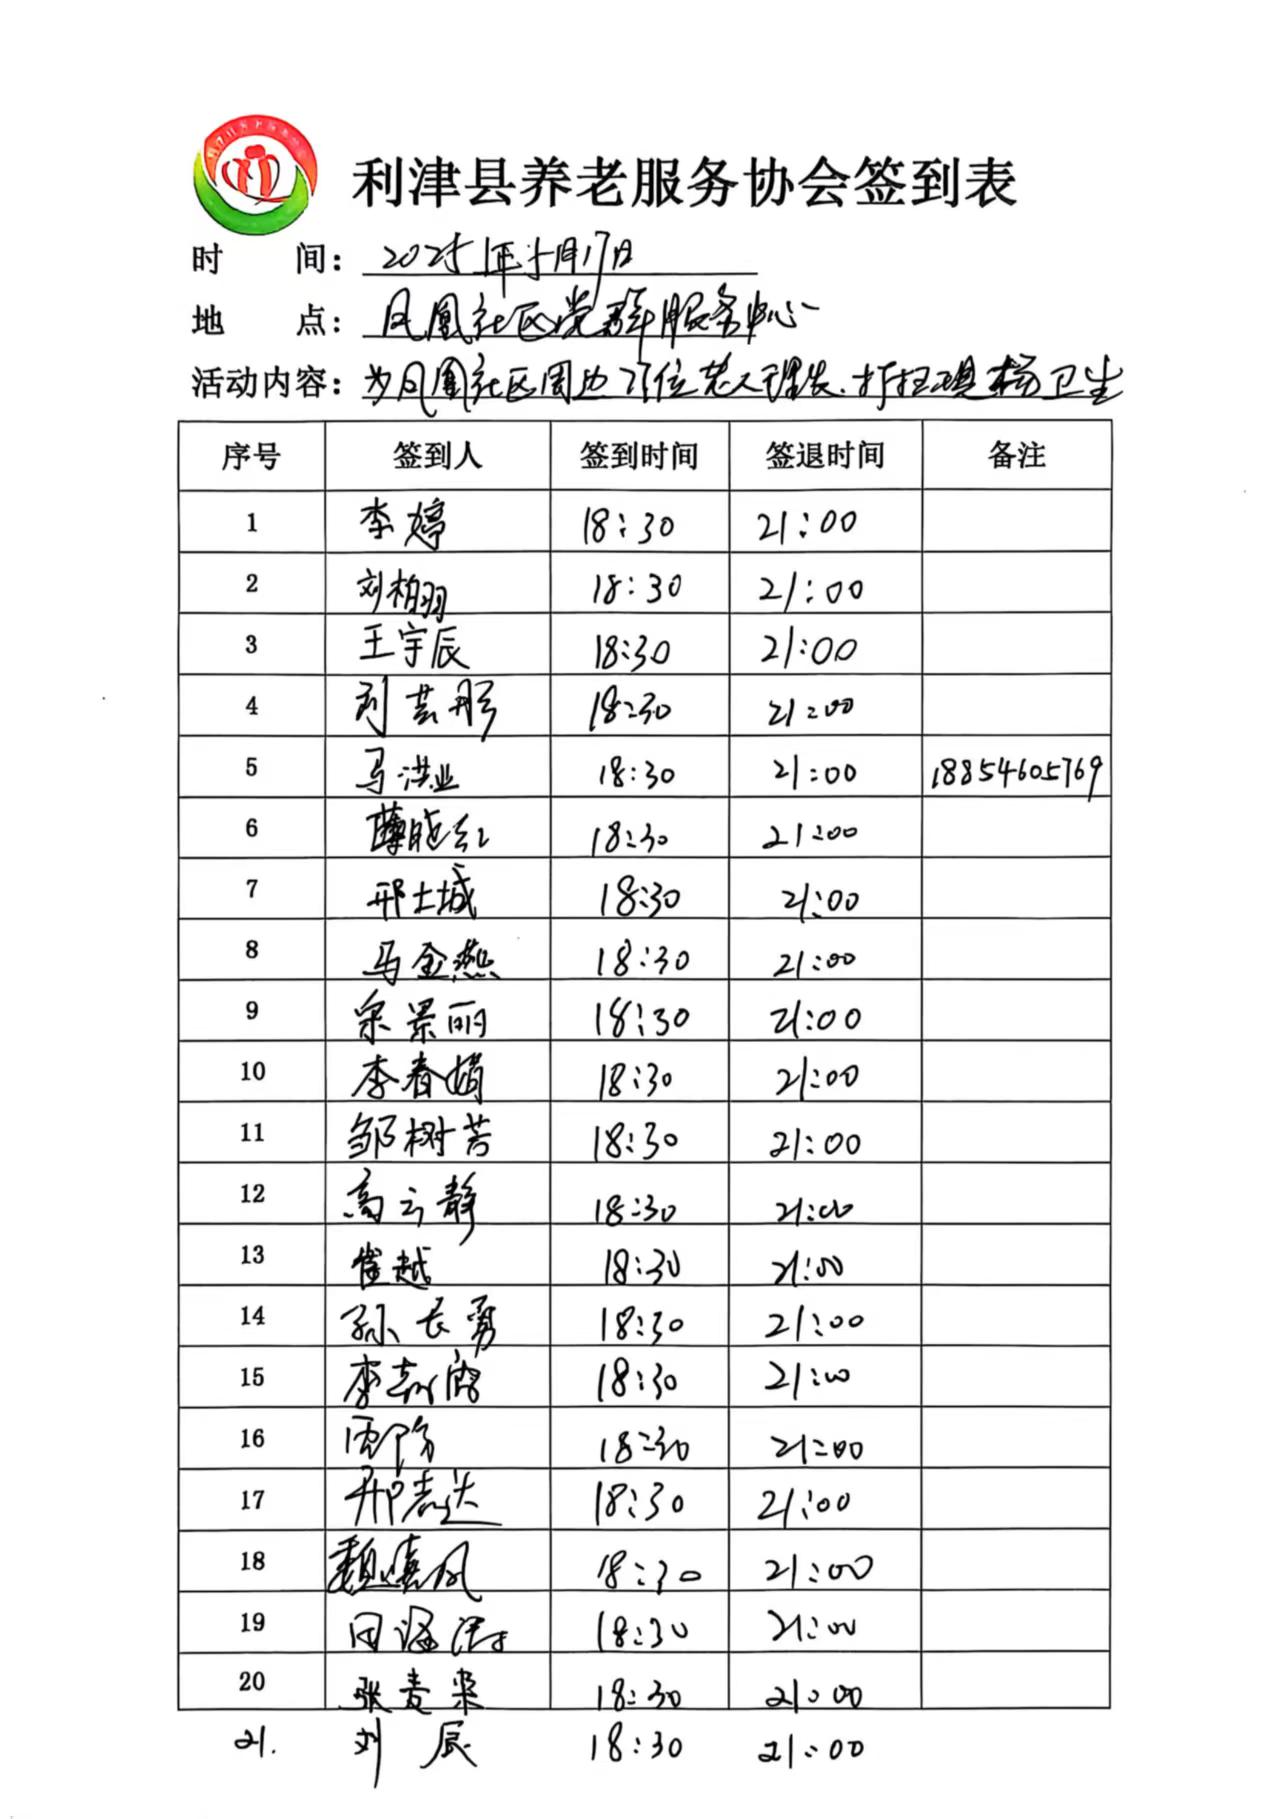 利津县养老服务协会签到表
时 间: 2025年5月17日
地 点: 凤凰社区党群服务中心
活动内容: 为凤凰社区周边 位老人理发.打扫现场卫生
序号 签到人 签到时间 签退时间 备注
1 李婷 18:30 21:00
2 刘柏羽 18:30 21:00
3 王宇辰 18:30 21:00
4 刘芸彤 18:30 21:00
5 马洪业 18:30 21:00 18854605769
6 薄晓红 18:30 21:00
7 邢土城 18:30 21:00
8 马金燕 18:30 21:00
9 宋景丽 18:30 21:00
10 李春娟 18:30 21:00
11 邹树芳 18:30 21:00
12 高云静 18:30 21:00
13 崔越 18:30 21:00
14 孙长勇 18:30 21:00
15 李 18:30 21:00
16 18:30 21:00
17 邢志达 18:30 21:00
18 魏 凤 18:30 21:00
19 18:30 21:00
20 张 18:30 21:00
21. 刘辰 18:30 21:00